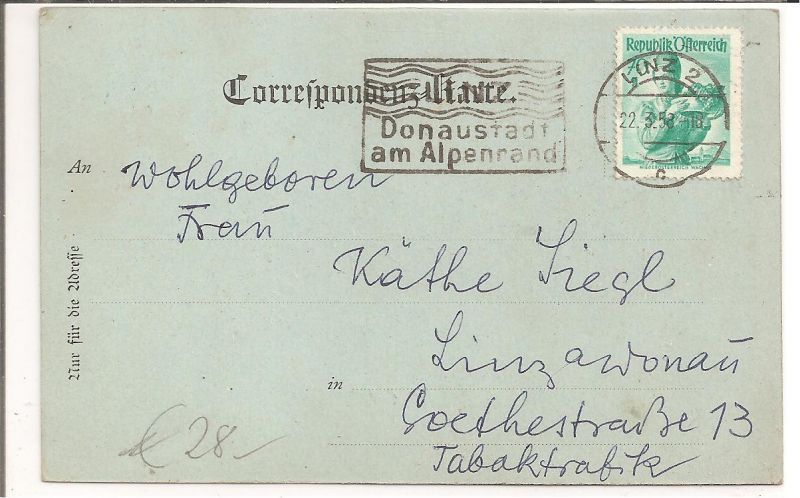 Republik Österreich
LINZ 2
Correspondenz-Karte.
LINZ
Donaustadt
am Alpenrand
22.3.58-18
c
NIEDERÖSTERREICH WACHAU
An Wohlgeboren
Frau
Käthe Siegl
Linz a Donau
in
Goethestraße 13
Tabaktrafik
Nur für die Adresse
€ 28-